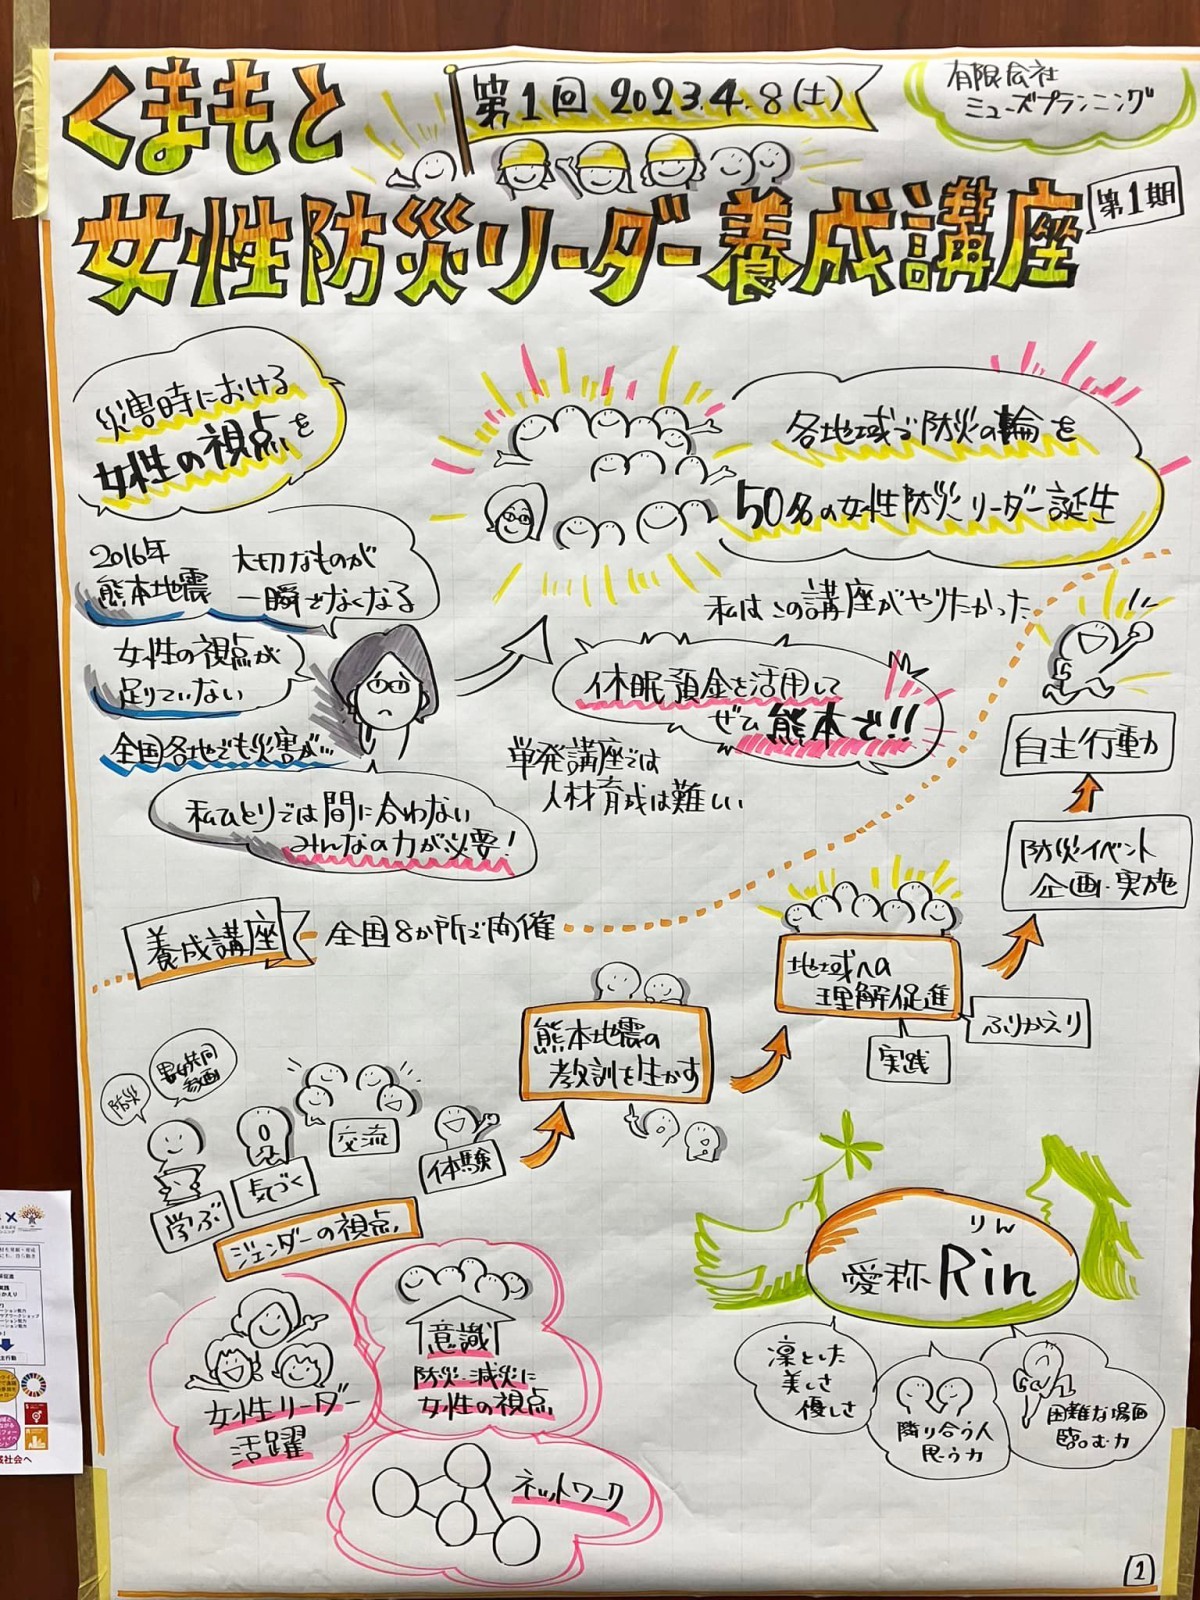 くまもと
第1回 2023.4.8(土)
有限会社
ミューズプランニング
女性防災リーダー養成講座
第1期
災害時における
女性の視点を
各地域で防災の輪を
50名の女性防災リーダー誕生
2016年
熊本地震
大切なものが
一瞬でなくなる
女性の視点が
足りていない
全国各地でも災害が…
私ひとりでは間に合わない
みんなの力が必要!
私はこの講座がやりたかった
休眠預金を活用して
ぜひ熊本で!!
単発講座では
人材育成は難しい
自主行動
防災イベント
企画・実施
養成講座
全国8か所で開催
地域への
理解促進
ふりかえり
実践
熊本地震の
教訓を生かす
防災
男女共同
参画
学ぶ
気づく
交流
体験
ジェンダーの視点
女性リーダー
活躍
意識
防災・減災に
女性の視点
ネットワーク
りん
愛称 Rin
凛とした
美しさ
優しさ
隣り合う人
思う力
困難な場面
臨む力
1